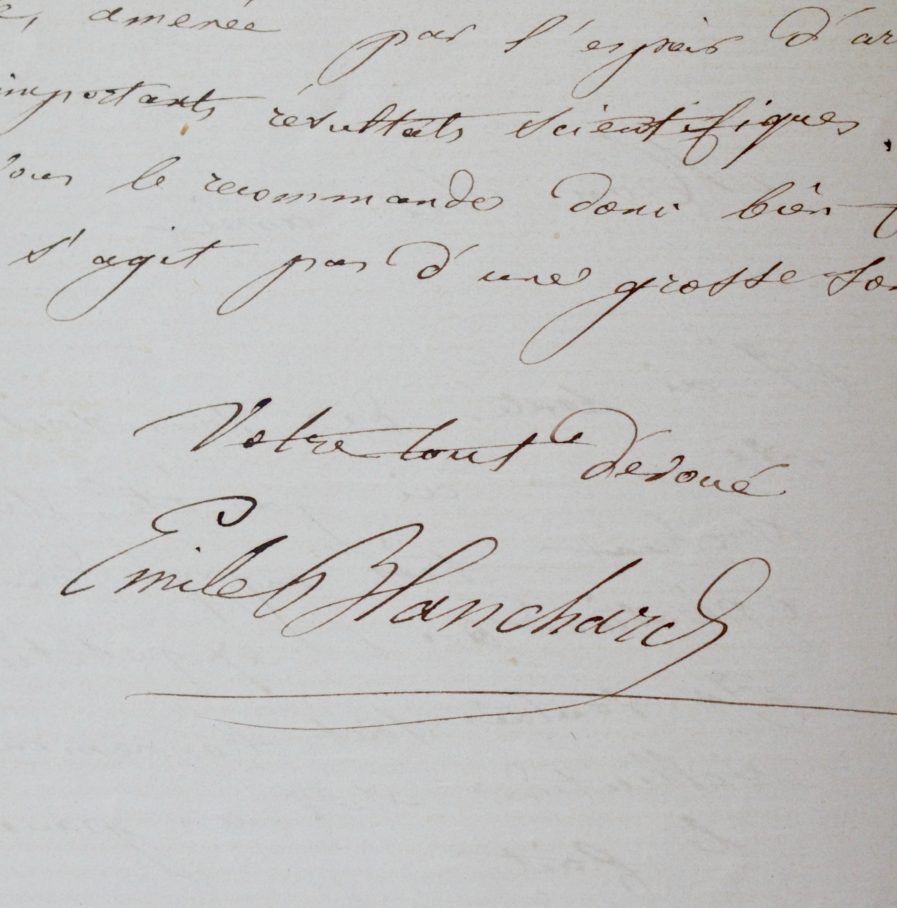 amenée par l'espoir d'ar
importants résultats scientifiques.
vous le recommande donc bien
s'agit pas d'une grosse som
Votre tout dévoué
Emile Blanchard